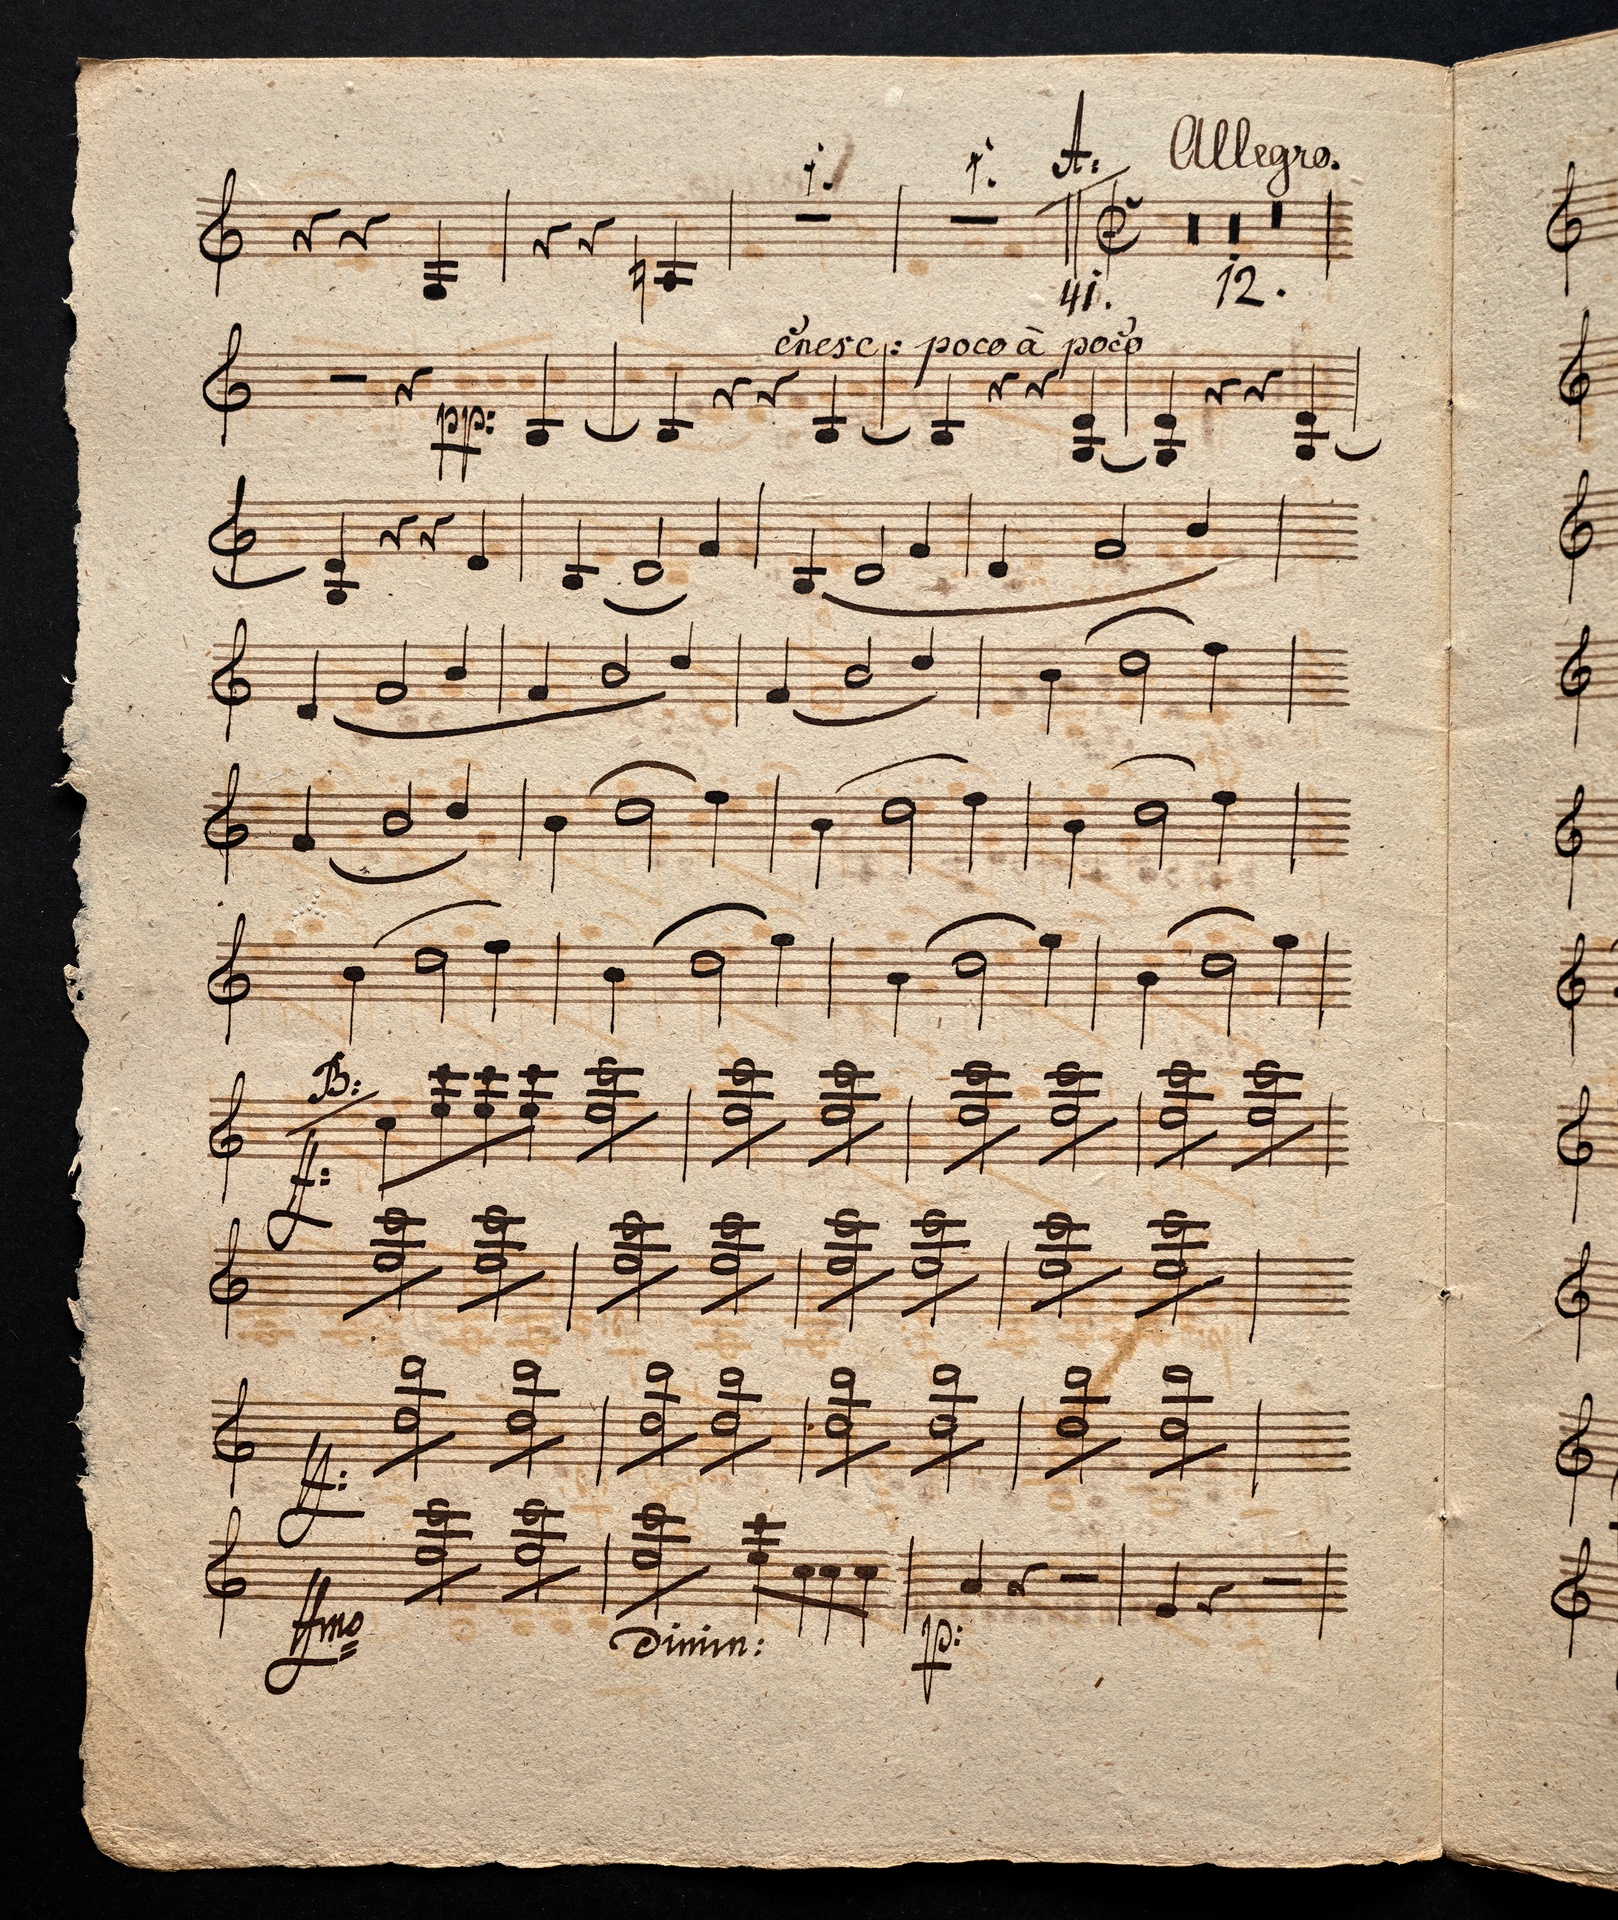 1. 1. A: Allegro.
41. 12.
cresc: poco à poco
pp:
B:
ff:
ff:
ffmo
Dimin: p: